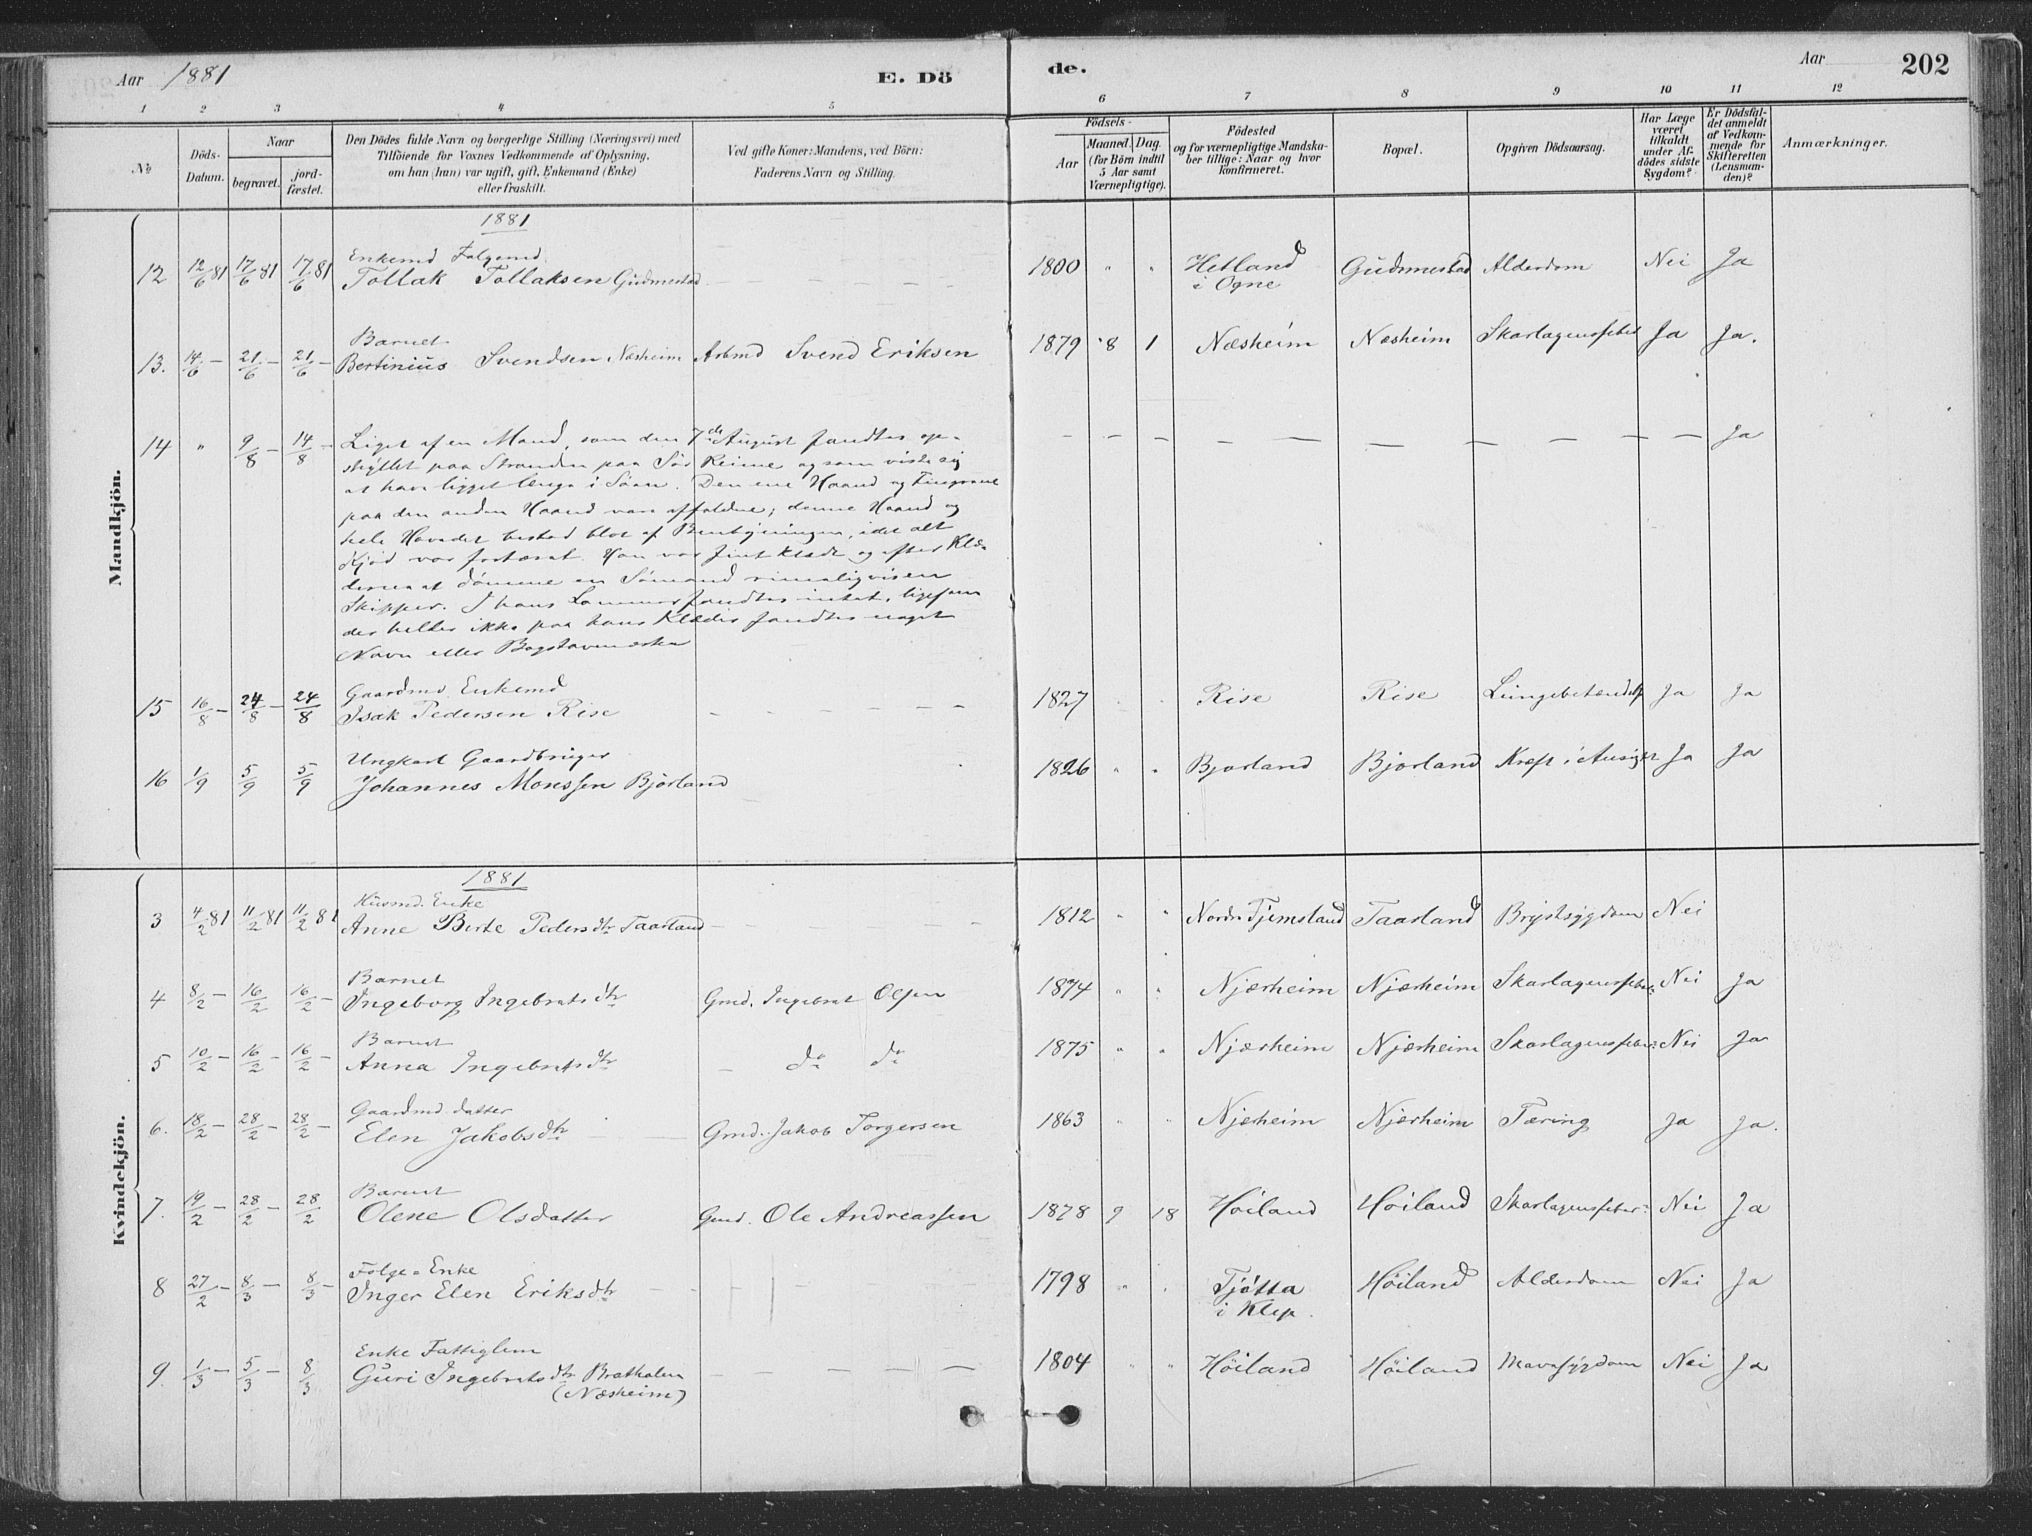 Aar 1881 E. Dö de. Aar 202
1 2 3 4 5 6 7 8 9 10 11 12
No
Döds-Datum.
Naar
begravet.
jordfæstet.
Den Dödes fulde Navn og borgerlige Stilling (Næringsvei) med
Tilföiende for Voxnes Vedkommende af Oplysning,
om han (hun) var ugift, gift, Enkemand (Enke)
eller fraskilt.
Ved gifte Koner: Mandens, ved Börn:
Faderens Navn og Stilling.
Födsels-
Aar
Maaned. Dag.
(for Börn indtil
5 Aar samt
Værnepligtige).
Födested
og for værnepligtige Mandskaber tillige: Naar og hvor
konfirmeret.
Bopæl.
Opgiven Dödsaarsag.
Har Læge
været
tilkaldt
under Afdödes sidste
Sygdom?
Er Dödsfaldet anmeldt
af Vedkommende for
Skifteretten
(Lensmanden)?
Anmærkninger.
Mandkjön.
1881
Enkemd Folgemd.
12 12/6 81 17/6 81 17/6 81 Tollak Tollaksen Gudmestad - - - - - 1800 " " Hetland Gudmestad Alderdom Nei Ja
i Ogne
Barnet
13. 14/6 - 21/6 - 21/6 - Bertinius Svendsen Næsheim Arbmd Svend Eriksen 1879 8 1 Næsheim Næsheim Skarlagensfeber Ja Ja.
14 " 9/8 - 14/8 - Liget af en Mand, som den 7de August fandtes op- - - - - - - - - - Ja
skyllet paa Stranden paa Sør Reime og som viste sig
at have ligget længe i Søen. Den ene Haand og Fingrene
paa den anden Haand vare affaldne; denne Haand og
hele Hovedet bestod blot af Benbygningen, idet alt
Kjød var fortæret. Han var fint klædt og efter Klæ-
derne at dømme en Sømand rimeligvisen
Skipper. I hans Lommer fandtes intet, ligesom
der heller ikke paa hans Klæder fandtes noget
Navn eller Bogstavmærke
Gaardmd. Enkemd
15 16/8 - 24/8 - 24/8 Isak Pedersen Rise - - - - - - 1827 Rise Rise Lungebetændelse Ja Ja
Ungkarl Gaardbruger
16 1/9 5/9 5/9 Johannes Monssen Bjorland 1826 " " Bjorland Bjorland Kræft i Ansigtet Ja Ja
Kvindekjön.
1881
Husmd. Enke
3 4/2 81 11/2 81 11/2 81 Anne Berte Pedersdtr Taarland - - - - - 1812 " " Nordr Tjemsland Taarland Brystsygdom Nei
Barnet
4 8/2 - 16/2 16/2 - Ingeborg Ingebratsdtr Gmd. Ingebrat Olsen 1874 " " Njærheim Njærheim Skarlagensfeber Nei Ja
Barnet
5 10/2 - 16/2 - 16/2 - Anna Ingebratsdtr - do do 1875 " " Njærheim Njærheim Skarlagensfeber Nei Ja
Gaardmd. datter
6. 18/2 - 28/2 - 28/2 - Elen Jakobsdtr Gmd. Jakob Torgersen 1863 " " Njærheim Njærheim Tæring Ja Ja.
Barnet
7. 19/2 - 28/2 - 28/2 Olene Olsdatter Gmd. Ole Andreassen 1878 9 18 Høiland Høiland Skarlagensfeber Nei Ja
Folge-Enke
8 27/2 - 8/3 - 8/3 - Inger Elen Eriksdtr - - 1798 " " Tjøtta Høiland Alderdom Nei Ja
i Klep.
Enke Fattiglem
9. 1/3 - 5/3 - 8/3 Guri Ingebratsdtr Bratholen - - - - - 1804 " " Høiland Høiland Mavesygdom Nei Ja
(Næsheim)